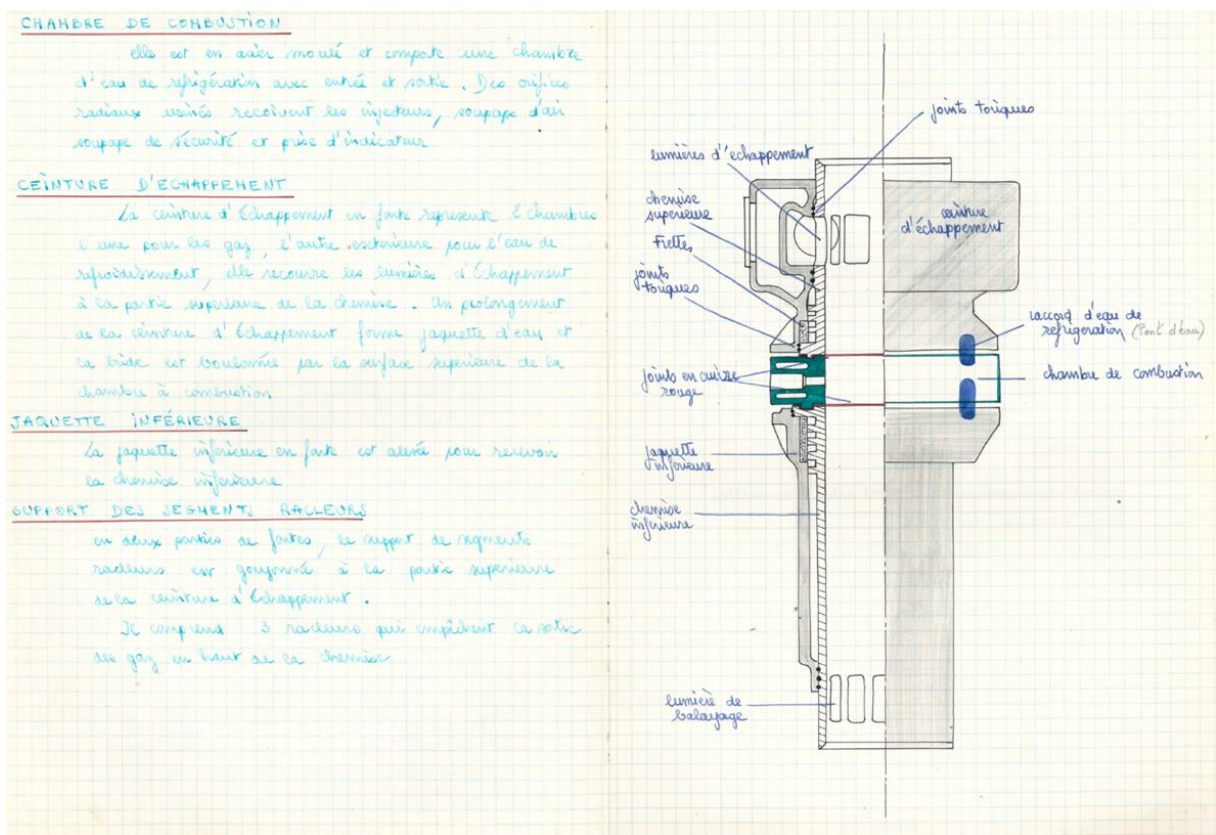 CHAMBRE DE COMBUSTION
elle est en acier moulé et comporte une chambre
d'eau de refrigération avec entrée et sortie. Des orifices
radiaux usinés recoivent les injecteurs, soupape d'air
soupape de sécurité et prise d'indicateur
CEINTURE D'ECHAPPEMENT
La ceinture d'Echappement en fonte represente 2 chambres
l'une pour les gaz, l'autre exterieure pour l'eau de
refroidissement, elle recouvre les lumières d'Echappement
à la partie superieure de la chemise. Un prolongement
de la ceinture d'Echappement forme jaquette d'eau et
la bride est boulonnée par la surface superieure de la
chambre à combustion
JAQUETTE INFÉRIEURE
La jaquette inferieure en fonte est alesée pour recevoir
la chemise inferieure
SUPPORT DES SEGMENTS RACLEURS
en deux parties de fontes, le support de segments
racleurs est goujonné à la partie superieure
de la ceinture d'Echappement.
Il comprend 3 racleurs qui empêchent la sortie
des gaz en haut de la chemise
joints toriques
lumières d'échappement
chemise
supérieure
Frettes
joints
toriques
ceinture
d'échappement
raccord d'eau de
refrigeration (Pont d'eau)
chambre de combustion
joints en cuivre
rouge
jaquette
inferieure
chemise
inferieure
lumière de
balayage